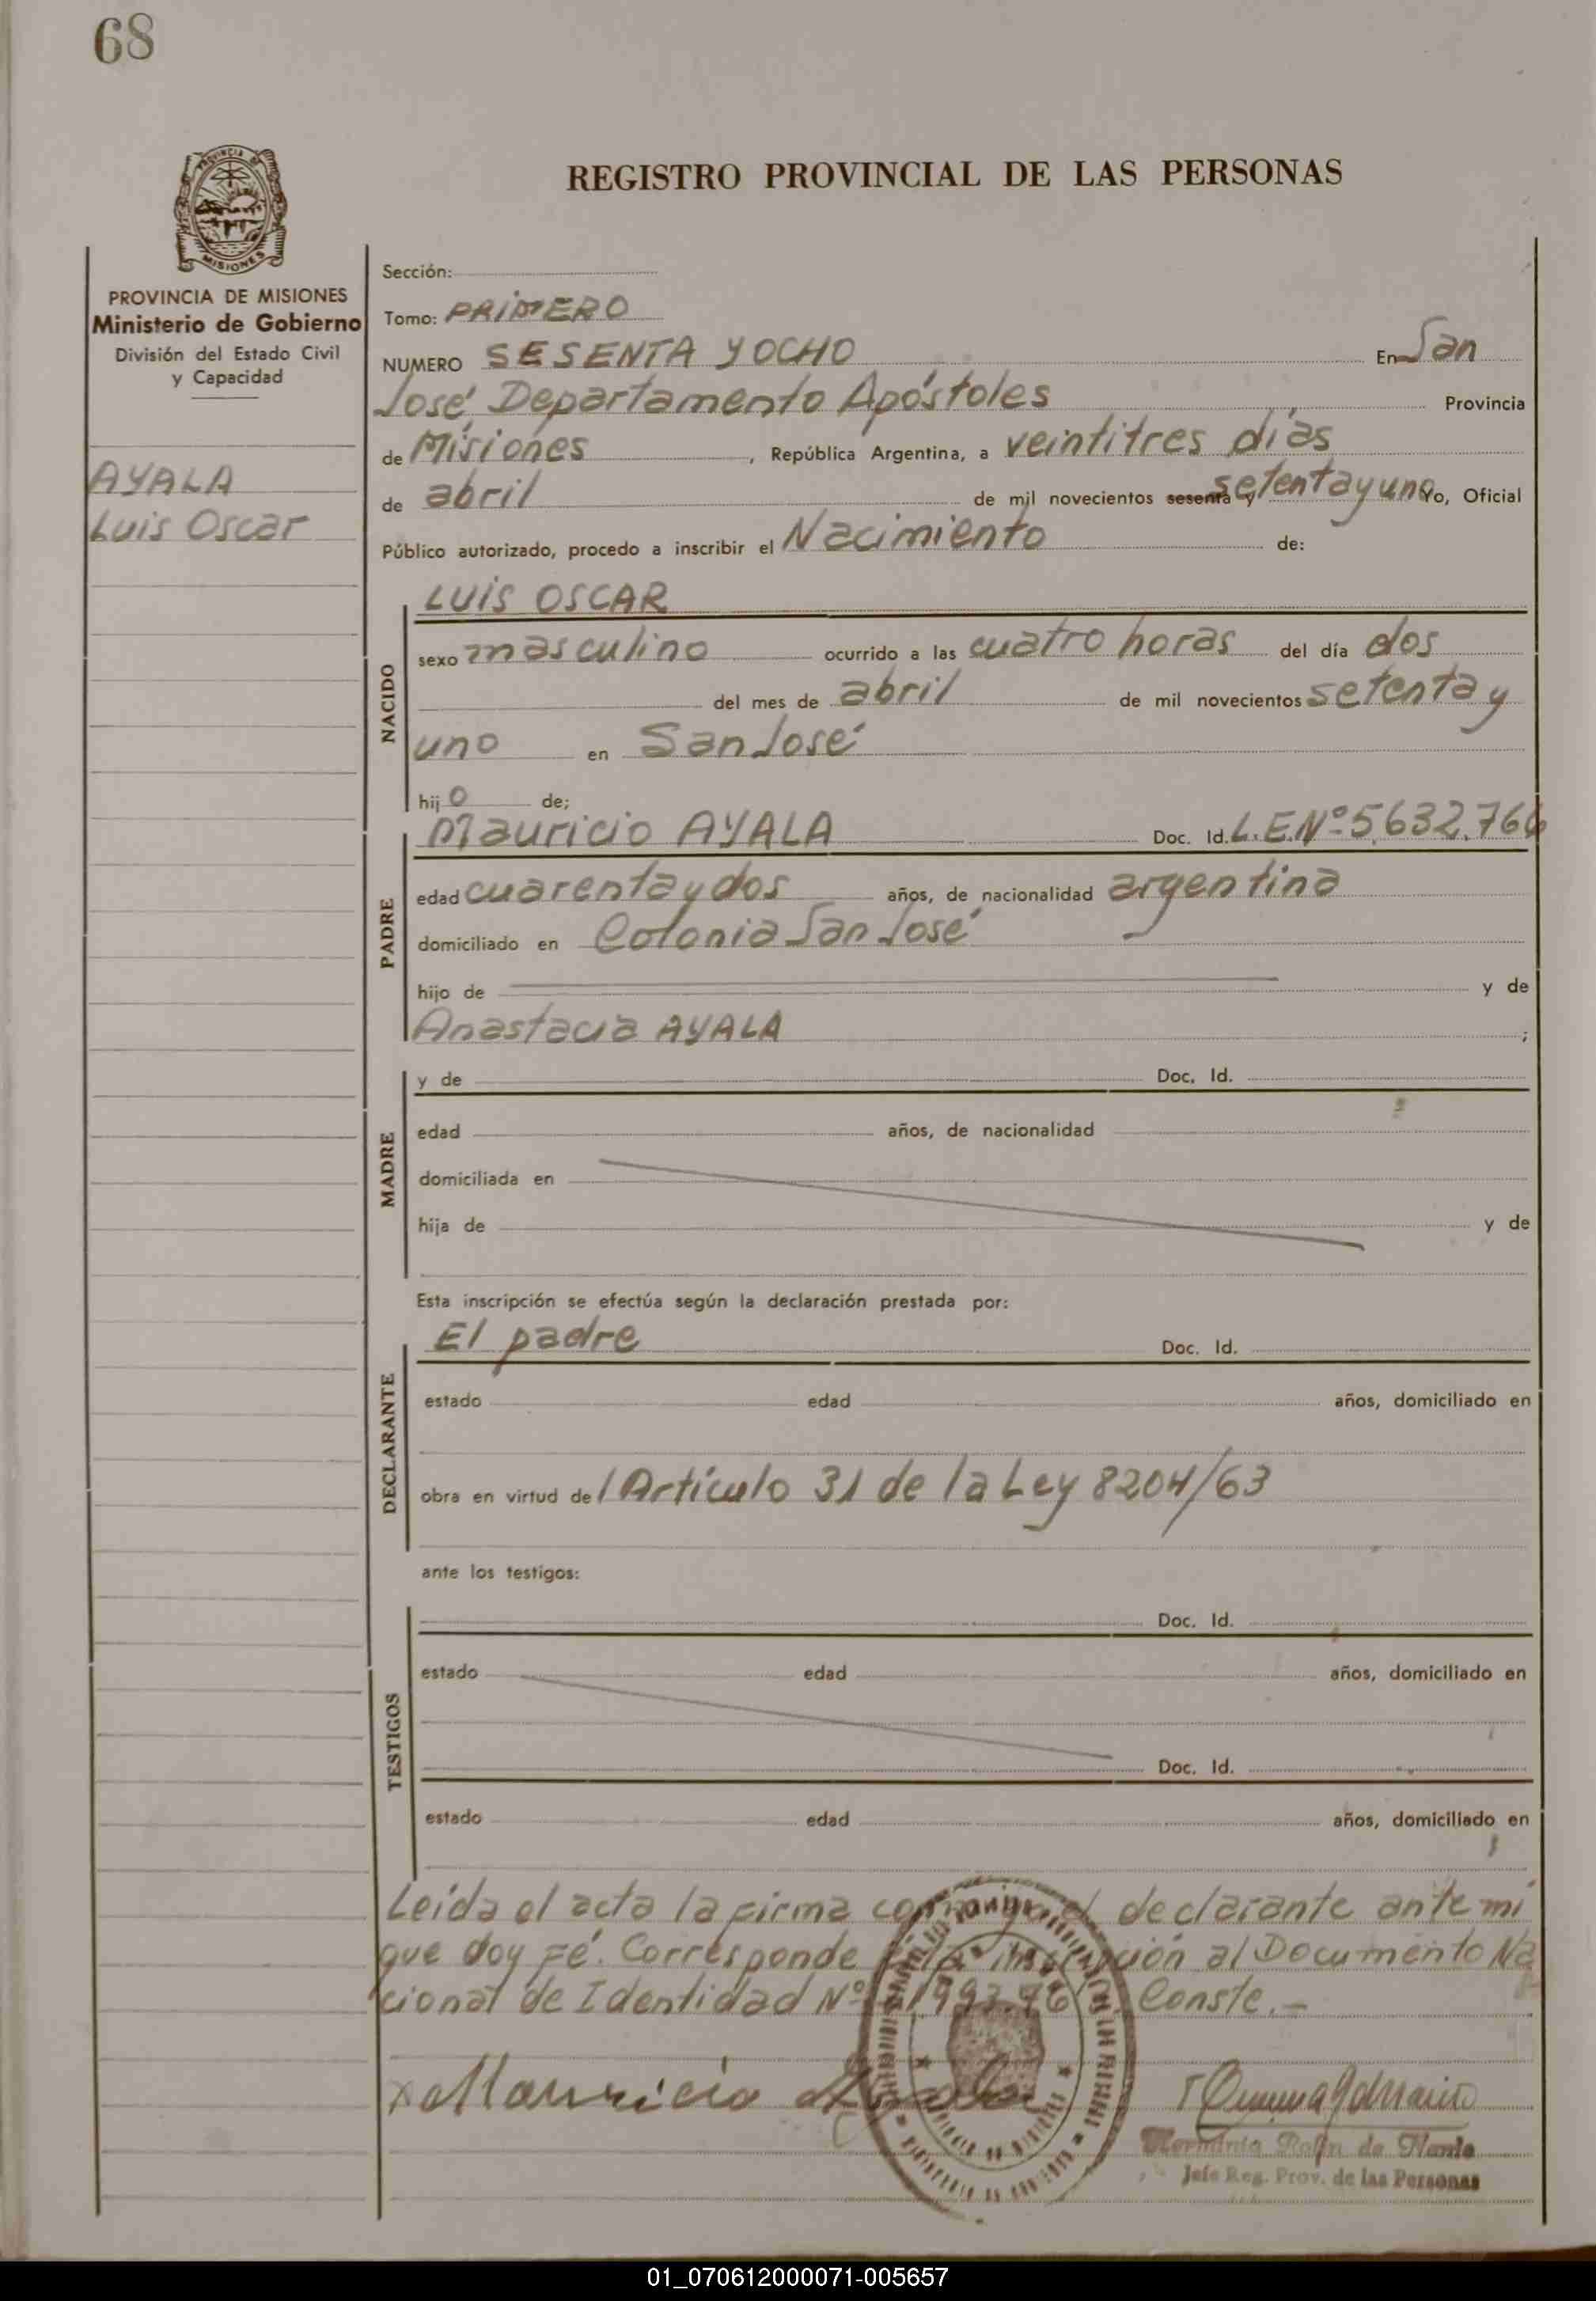 68
REGISTRO PROVINCIAL DE LAS PERSONAS
PROVINCIA DE MISIONES
Ministerio de Gobierno
División del Estado Civil
y Capacidad
AYALA
Luis Oscar
Sección:
Tomo: PRIMERO
NUMERO SESENTA Y OCHO En San
José, Departamento Apóstoles Provincia
de Misiones, República Argentina, a veintitres días
de abril de mil novecientos sesenta y setenta y uno Yo, Oficial
Público autorizado, procedo a inscribir el Nacimiento de:
NACIDO
LUIS OSCAR
sexo masculino ocurrido a las cuatro horas del día dos
del mes de abril de mil novecientos setenta y
uno en San José
hijo de;
PADRE
Mauricio AYALA Doc. Id. L.E.Nº 5.632.766
edad cuarenta y dos años, de nacionalidad argentina
domiciliado en Colonia San José
hijo de y de
Anastacia AYALA ;
MADRE
y de Doc. Id.
edad años, de nacionalidad
domiciliada en
hija de y de
Esta inscripción se efectúa según la declaración prestada por:
DECLARANTE
El padre Doc. Id.
estado edad años, domiciliado en
obra en virtud del Artículo 31 de la Ley 8204/63
ante los testigos:
TESTIGOS
Doc. Id.
estado edad años, domiciliado en
Doc. Id.
estado edad años, domiciliado en
Leída el acta la firma conmigo el declarante ante mi
que doy fé. Corresponde inscripción al Documento Na
cional de Identidad Nº Conste.-
x Mauricio Ayala
Herminia Rolin de
Jefe Reg. Prov. de las Personas
01_070612000071-005657